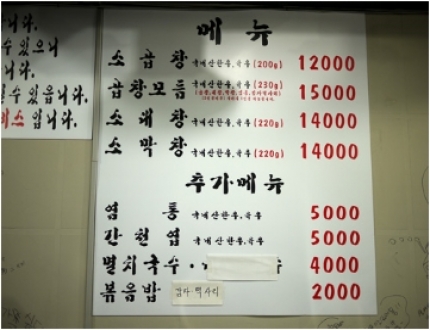 니다.
수 있으니
니다.
수 있읍니다.
비스 입니다.
메 뉴
소 곱 창 국내산한우, 육우 (200g) 12000
곱창모듬 국내산한우, 육우 (230g) 15000
소 대 창 국내산한우, 육우 (220g) 14000
소 막 창 국내산한우, 육우 (220g) 14000
추가메뉴
염 통 국내산한우, 육우 5000
간 천 엽 국내산한우, 육우 5000
멸치국수 · 4000
볶음밥 감자·떡사리 2000